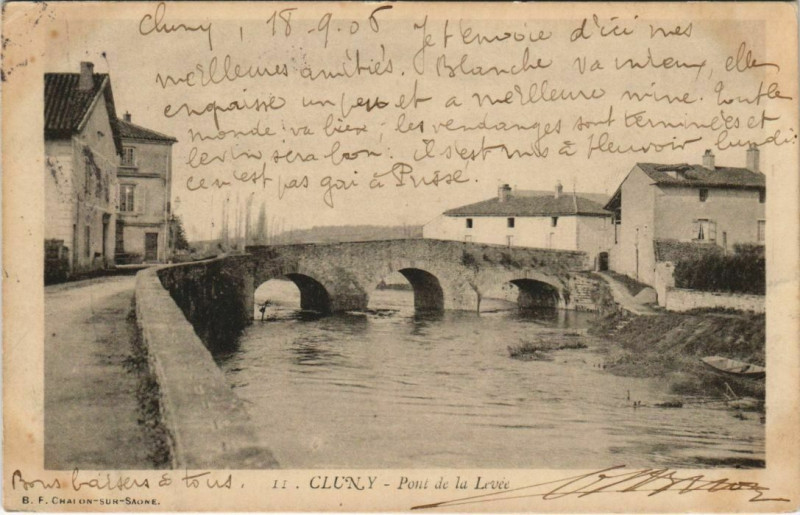 Cluny, 18-9-06 Je t'envoie d'ici mes
meilleures amitiés. Blanche va mieux, elle
engraisse un peu et a meilleure mine. Tout le
monde va bien; les vendanges sont terminées et
le vin sera bon. Il s'est mis à pleuvoir lundi:
ce n'est pas gai à Prissé.
Bons baisers à tous.
11. CLUNY - Pont de la Levée
B. F. CHALON-SUR-SAONE.